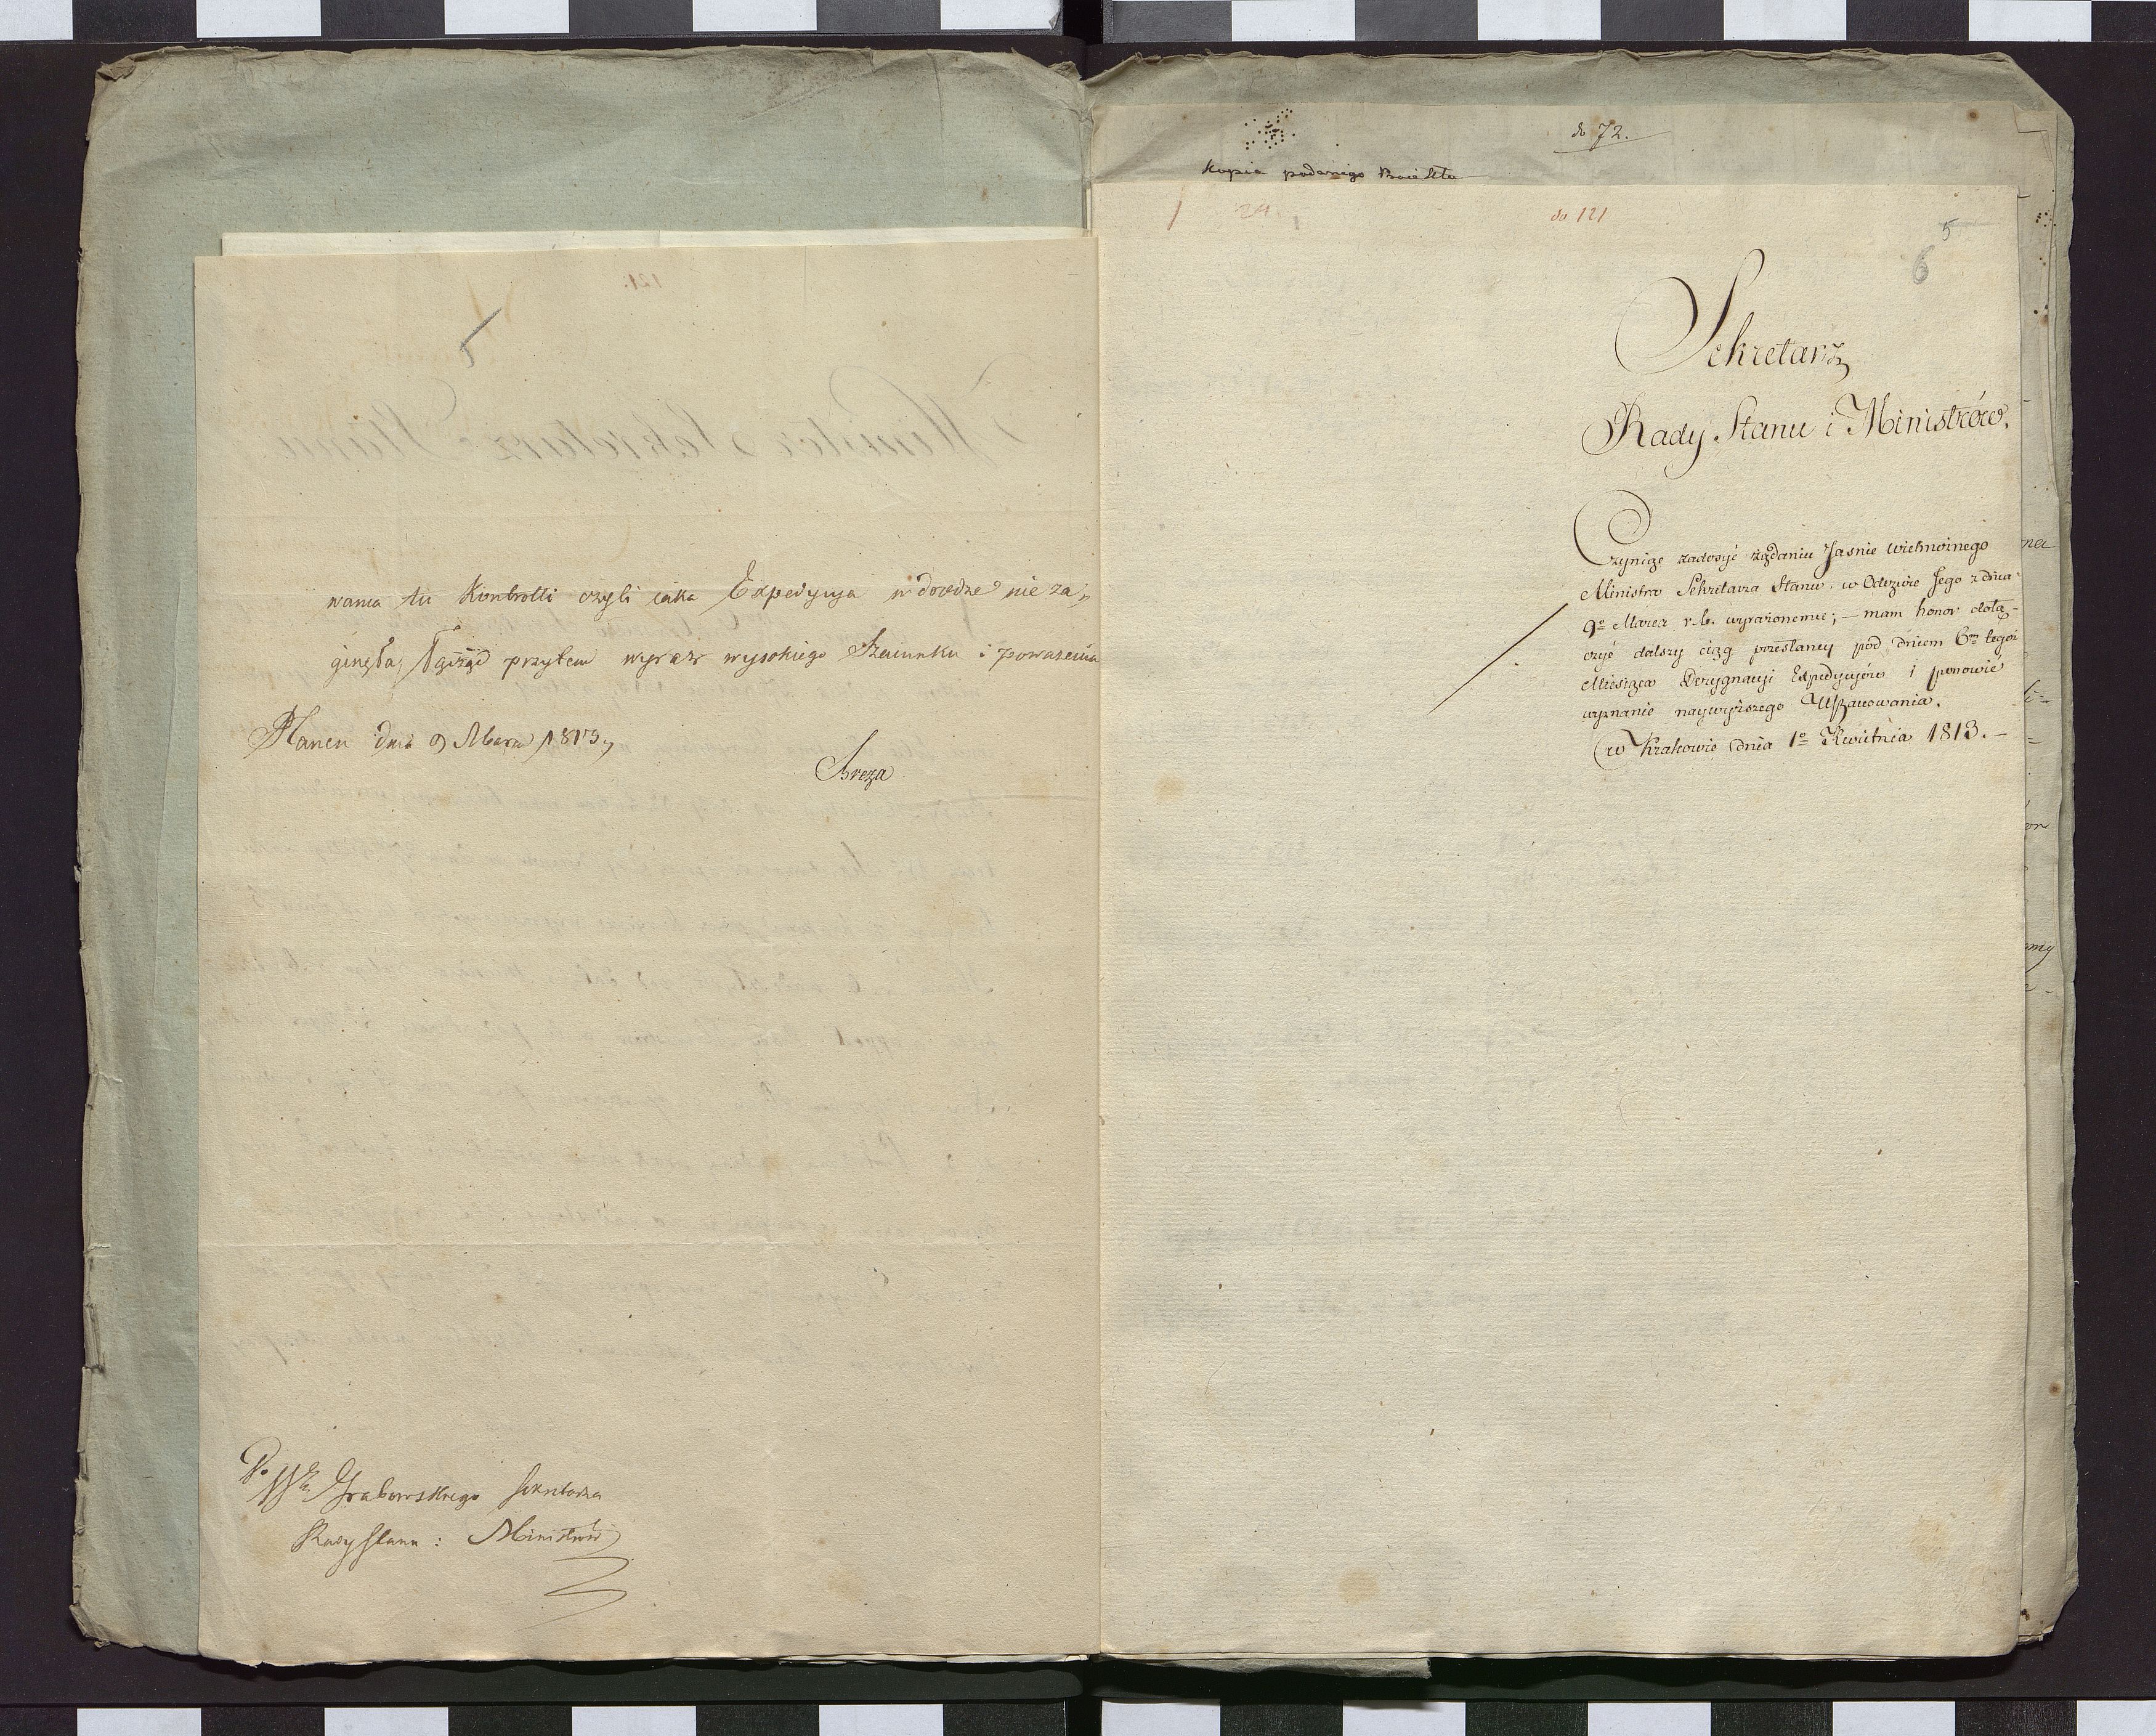 wania tu Kontrolli czyli iaka Expedycya w drodze nie za„
ginęła, łącząc przytem wyraz wysokiego Szacunku i poważenia
Planen dnia 9 Marca 1813,
Breza
Do JW. Grabowskiego Sekretarza
Rady Stanu i Ministrów
do 72.
Kopia podanego
1 24 do 121
5
6
Sekretarz
Rady Stanu i Ministrów.
Czyniąc zadosyć żądaniu Jaśnie Wielmożnego
Ministra Sekretarza Stanu, w Odezwie Jego z dnia
9º Marca r. b. wyrażonemu; – mam honor dołą-
czyć dalszy ciąg przesłaney pod dniem 6m tegoż
Miesiąca Dezygnacyi Expedycyiów i ponowić
wyznanie naywyższego Uszanowania.
w Krakowie dnia 1º Kwietnia 1813. –